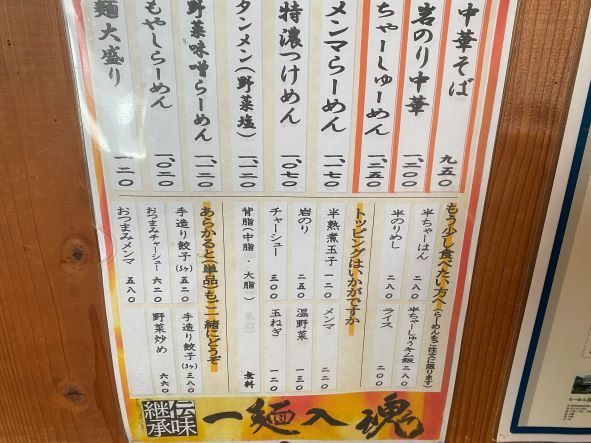 中華そば 九五〇
岩のり中華 一、二〇〇
ちゃーしゅーめん 一、二五〇
メンマらーめん 一、一七〇
特濃つけめん 一、〇七〇
タンメン（野菜塩） 一、一二〇
野菜味噌らーめん 一、一二〇
もやしらーめん 一、〇二〇
麺大盛り 一二〇
もう少し食べたい方へ（らーめんをご注文に限ります）
半ちゃーはん 二八〇
半ちゃーしゅうキム飯 二八〇
半のりめし 二八〇
ライス 二〇〇
トッピングはいかがですか
半熟煮玉子 一二〇
メンマ 二二〇
岩のり 二五〇
温野菜 一三〇
チャーシュー 三〇〇
玉ねぎ 一二〇
背脂（中脂・大脂） 無料
あらかると（単品）もご一緒にどうぞ
手造り餃子（5ヶ） 五二〇
手造り餃子（3ヶ） 三八〇
おつまみチャーシュー 六二〇
野菜炒め 六六〇
おつまみメンマ 五八〇
伝味継承 一麺入魂